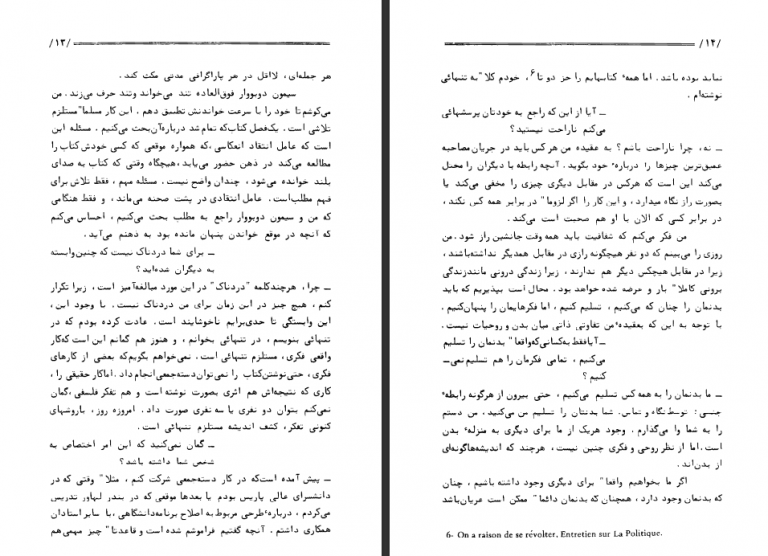 /۱۲/
نماند بوده باشد. اما همهٔ کتابهایم را جز دو تا۶، خودم کلا" به تنهائی
نوشته‌ام.
ــ آیا از این که راجع به خودتان پرسشهائی
می‌کنم ناراحت نیستید؟
ــ نه، چرا ناراحت باشم؟ به عقیده من هرکس باید در جریان مصاحبه
عمیق‌ترین چیزها را دربارهٔ خود بگوید. آنچه رابطه با دیگران را مختل
می‌کند این است که هرکس در مقابل دیگری چیزی را مخفی می‌کند یا
بصورت راز نگاه میدارد، و این کار را اگر لزوما" در برابر همه کس نکند،
در برابر کسی که الان با او هم صحبت است می‌کند.
من فکر می‌کنم که شفافیت باید همه وقت جانشین راز شود. من
روزی را می‌بینم که دو نفر هیچگونه رازی در مقابل همدیگر نداشته‌باشند،
زیرا در مقابل هیچکس دیگر هم ندارند، زیرا زندگی درونی مانندزندگی
برونی کاملا" باز و عرضه شده خواهد بود. محال است بپذیریم که باید
بدنمان را چنان که می‌کنیم، تسلیم کنیم، اما فکرهایمان را پنهان‌کنیم.
با توجه به این که بعقیدهٔ من تفاوتی ذاتی میان بدن و روحیات نیست.
ــ آیافقط به‌کسانی‌که‌واقعا" بدنمان را تسلیم
می‌کنیم، تمامی فکرمان را هم تسلیم نمی‌ــ
کنیم؟
ــ ما بدنمان را به همه کس تسلیم می‌کنیم، حتی بیرون از هرگونه رابطهٔ
جنسی: توسط نگاه و تماس. شما بدنتان را تسلیم من می‌کنید، من دستم
را به شما وا می‌گذارم. وجود هریک از ما برای دیگری به منزلهٔ بدن
است. اما از نظر روحی و فکری چنین نیست، هرچند که اندیشه‌هاگونه‌ای
از بدن‌اند.
اگر ما بخواهیم واقعا" برای دیگری وجود داشته باشیم، چنان
که بدنمان وجود دارد، همچنان که بدنمان دائما" ممکن است عریان‌باشد
6- On a raison de se révolter, Entretien sur La Politique.
/۱۳/
هر جمله‌ای، لااقل در هر پاراگرافی مدتی مکث کند.
سیمون دوبووار فوق‌العاده تند می‌خواند وتند حرف می‌زند. من
می‌کوشم‌تا خود را با سرعت خواندنش تطبیق دهم. این کار مسلما" مستلزم
تلاشی است. یک‌فصل کتاب‌که تمام شد درباره‌آن‌بحث می‌کنیم. مسئله این
است که عامل انتقاد انعکاسی،که همواره موقعی که کسی خودش‌کتاب را
مطالعه می‌کند در ذهن حضور می‌یابد،هیچگاه وقتی که کتاب به صدای
بلند خوانده می‌شود، چندان واضح نیست. مسئله مهم، فقط تلاش برای
فهم مطلب‌است. عامل انتقادی در پشت صحنه می‌ماند، و فقط هنگامی
که من و سیمون دوبووار راجع به مطلب بحث می‌کنیم، احساس می‌کنم
که آنچه در موقع خواندن پنهان مانده بود به ذهنم می‌آید.
ــ برای شما دردناک نیست که چنین‌وابسته
به دیگران شده‌اید؟
ــ چرا، هرچندکلمه "دردناک" در این مورد مبالغه‌آمیز است، زیرا تکرار
کنم، هیچ چیز در این زمان برای من دردناک نیست. با وجود این،
این وابستگی تا حدی‌برایم ناخوشایند است. عادت کرده بودم که در
تنهائی بنویسم، در تنهائی بخوانم، و هنوز هم گمانم این است‌که‌کار
واقعی فکری، مستلزم تنهائی است. نمی‌خواهم بگویم‌که بعضی از کارهای
فکری، حتی‌نوشتن‌کتاب را نمی‌توان دسته‌جمعی‌انجام داد. اماکار حقیقی را،
کاری که نتیجه‌اش هم اثری بصورت نوشته است و هم تفکر فلسفی،گمان
نمی‌کنم بتوان دو نفری یا سه نفری صورت داد. امروزه روز، باروشهای
کنونی تفکر، کشف اندیشه مستلزم تنهائی است.
ــ گمان نمی‌کنید که این امر اختصاص به
شخص شما داشته باشد؟
ــ پیش آمده است‌که در کار دسته‌جمعی شرکت کنم، مثلا" وقتی که در
دانشسرای عالی پاریس بودم یا بعدها موقعی که در بندر لهاور تدریس
می‌کردم، دربارهٔ طرحی مربوط به اصلاح برنامه‌دانشگاهی، با سایر استادان
همکاری داشتم. آنچه گفتیم فراموشم شده است و قاعدتا" چیز مهمی‌هم